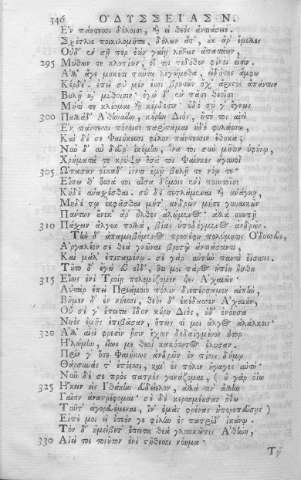 346 ΟΔΥΣΣΕΙΑΣ Ν.
Ἐν πάντεσσι δόλοισι, καὶ εἰ θεὸς ἀντιάσειε.
Σχέτλιε, ποικιλομῆτα, δόλων ἆτ', οὐκ ἄρ' ἔμελλες
Οὐδ' ἐν σῇ περ ἐὼν γαίῃ λήξειν ἀπατάων
295 Μύθων τε κλοπίων, οἵ τοι πεδόθεν φίλοι εἰσίν.
Ἀλλ' ἄγε μηκέτι ταῦτα λεγώμεθα, εἰδότες ἄμφω
Κέρδε', ἐπεὶ σὺ μέν ἐσσι βροτῶν ὄχ' ἄριστος ἁπάντων
Βουλῇ καὶ μύθοισιν· ἐγὼ δ' ἐν πᾶσι θεοῖσι
Μήτι τε κλέομαι καὶ κέρδεσιν· οὐδὲ σύ γ' ἔγνως
300 Παλλάδ' Ἀθηναίην, κούρην Διὸς, ἥτε τοι αἰεὶ
Ἐν πάντεσσι πόνοισι παρίσταμαι ἠδὲ φυλάσσω,
Καὶ δέ σε Φαιήκεσσι φίλον πάντεσσιν ἔθηκα.
Νῦν δ' αὖ δεῦρ' ἱκόμην, ἵνα τοι σὺν μῆτιν ὑφήνω,
Χρήματά τε κρύψω ὅσα τοι Φαίηκες ἀγαυοὶ
305 Ὤπασαν οἴκαδ' ἰόντι ἐμῇ βουλῇ τε νόῳ τε·
Εἴπω θ' ὅσσα τοι αἶσα δόμοις ἐνὶ ποιητοῖσι
Κήδε' ἀνασχέσθαι· σὺ δὲ τετλάμεναι καὶ ἀνάγκῃ,
Μηδέ τῳ ἐκφάσθαι μήτ' ἀνδρῶν μήτε γυναικῶν
Πάντων οὕνεκ' ἄρ' ἦλθες ἀλώμενος· ἀλλὰ σιωπῇ
310 Πάσχειν ἄλγεα πολλὰ, βίας ὑποδέγμενος ἀνδρῶν.
Τὴν δ' ἀπαμειβόμενος προσέφη πολύμητις Ὀδυσσεύς·
Ἀργαλέον σε θεὰ γνῶναι βροτῷ ἀντιάσαντι
Καὶ μάλ' ἐπισταμένῳ· σὲ γὰρ αὐτὴν παντὶ ἐΐσκεις.
Τοῦτο δ' ἐγὼν εὖ οἶδ', ὅτι μοι πάρος ἠπίη ἦσθα
315 Ἕως ἐνὶ Τροίῃ πολεμίζομεν υἷες Ἀχαιῶν·
Αὐτὰρ ἐπεὶ Πριάμοιο πόλιν διεπέρσαμεν αἰπὴν,
Βῆμεν δ' ἐν νήεσσι, θεὸς δ' ἐκέδασσεν Ἀχαιούς,
Οὐ σέ γ' ἔπειτα ἴδον κούρη Διὸς, οὐδ' ἐνόησα
Νηὸς ἐμῆς ἐπιβᾶσαν, ὅπως τί μοι ἄλγος ἀλάλκοις·
320 Ἀλλ' αἰεὶ φρεσὶν ᾗσιν ἔχων δεδαϊγμένον ἦτορ
Ἠλώμην, εἵως με θεοὶ κακότητος ἔλυσαν·
Πρίν γ' ὅτε Φαιήκων ἀνδρῶν ἐν πίονι δήμῳ
Θάρσυνάς τ' ἐπέεσσι, καὶ ἐς πόλιν ἤγαγες αὐτή·
Νῦν δέ σε πρὸς πατρὸς γουνάζομαι, (οὐ γὰρ ὀΐω
325 Ἥκειν εἰς Ἰθάκην εὐδείελον, ἀλλά τιν' ἄλλην
Γαῖαν ἀναστρέφομαι· σὲ δὲ κερτομέουσαν ὀΐω
Ταῦτ' ἀγορευέμεναι, ἵν' ἐμὰς φρένας ἠπεροπεύσῃς)
Εἰπέ μοι εἰ ἐτεόν γε φίλην ἐς πατρίδ' ἱκάνω.
Τὸν δ' ἠμείβετ' ἔπειτα θεὰ γλαυκῶπις Ἀθήνη,
330 Αἰεί τοι τοιοῦτον ἐνὶ στήθεσσι νόημα·
Τῷ